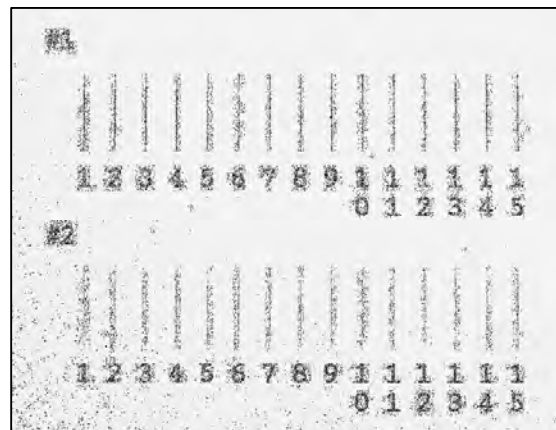 #1
1 2 3 4 5 6 7 8 9 1 1 1 1 1 1
0 1 2 3 4 5
#2
1 2 3 4 5 6 7 8 9 1 1 1 1 1 1
0 1 2 3 4 5